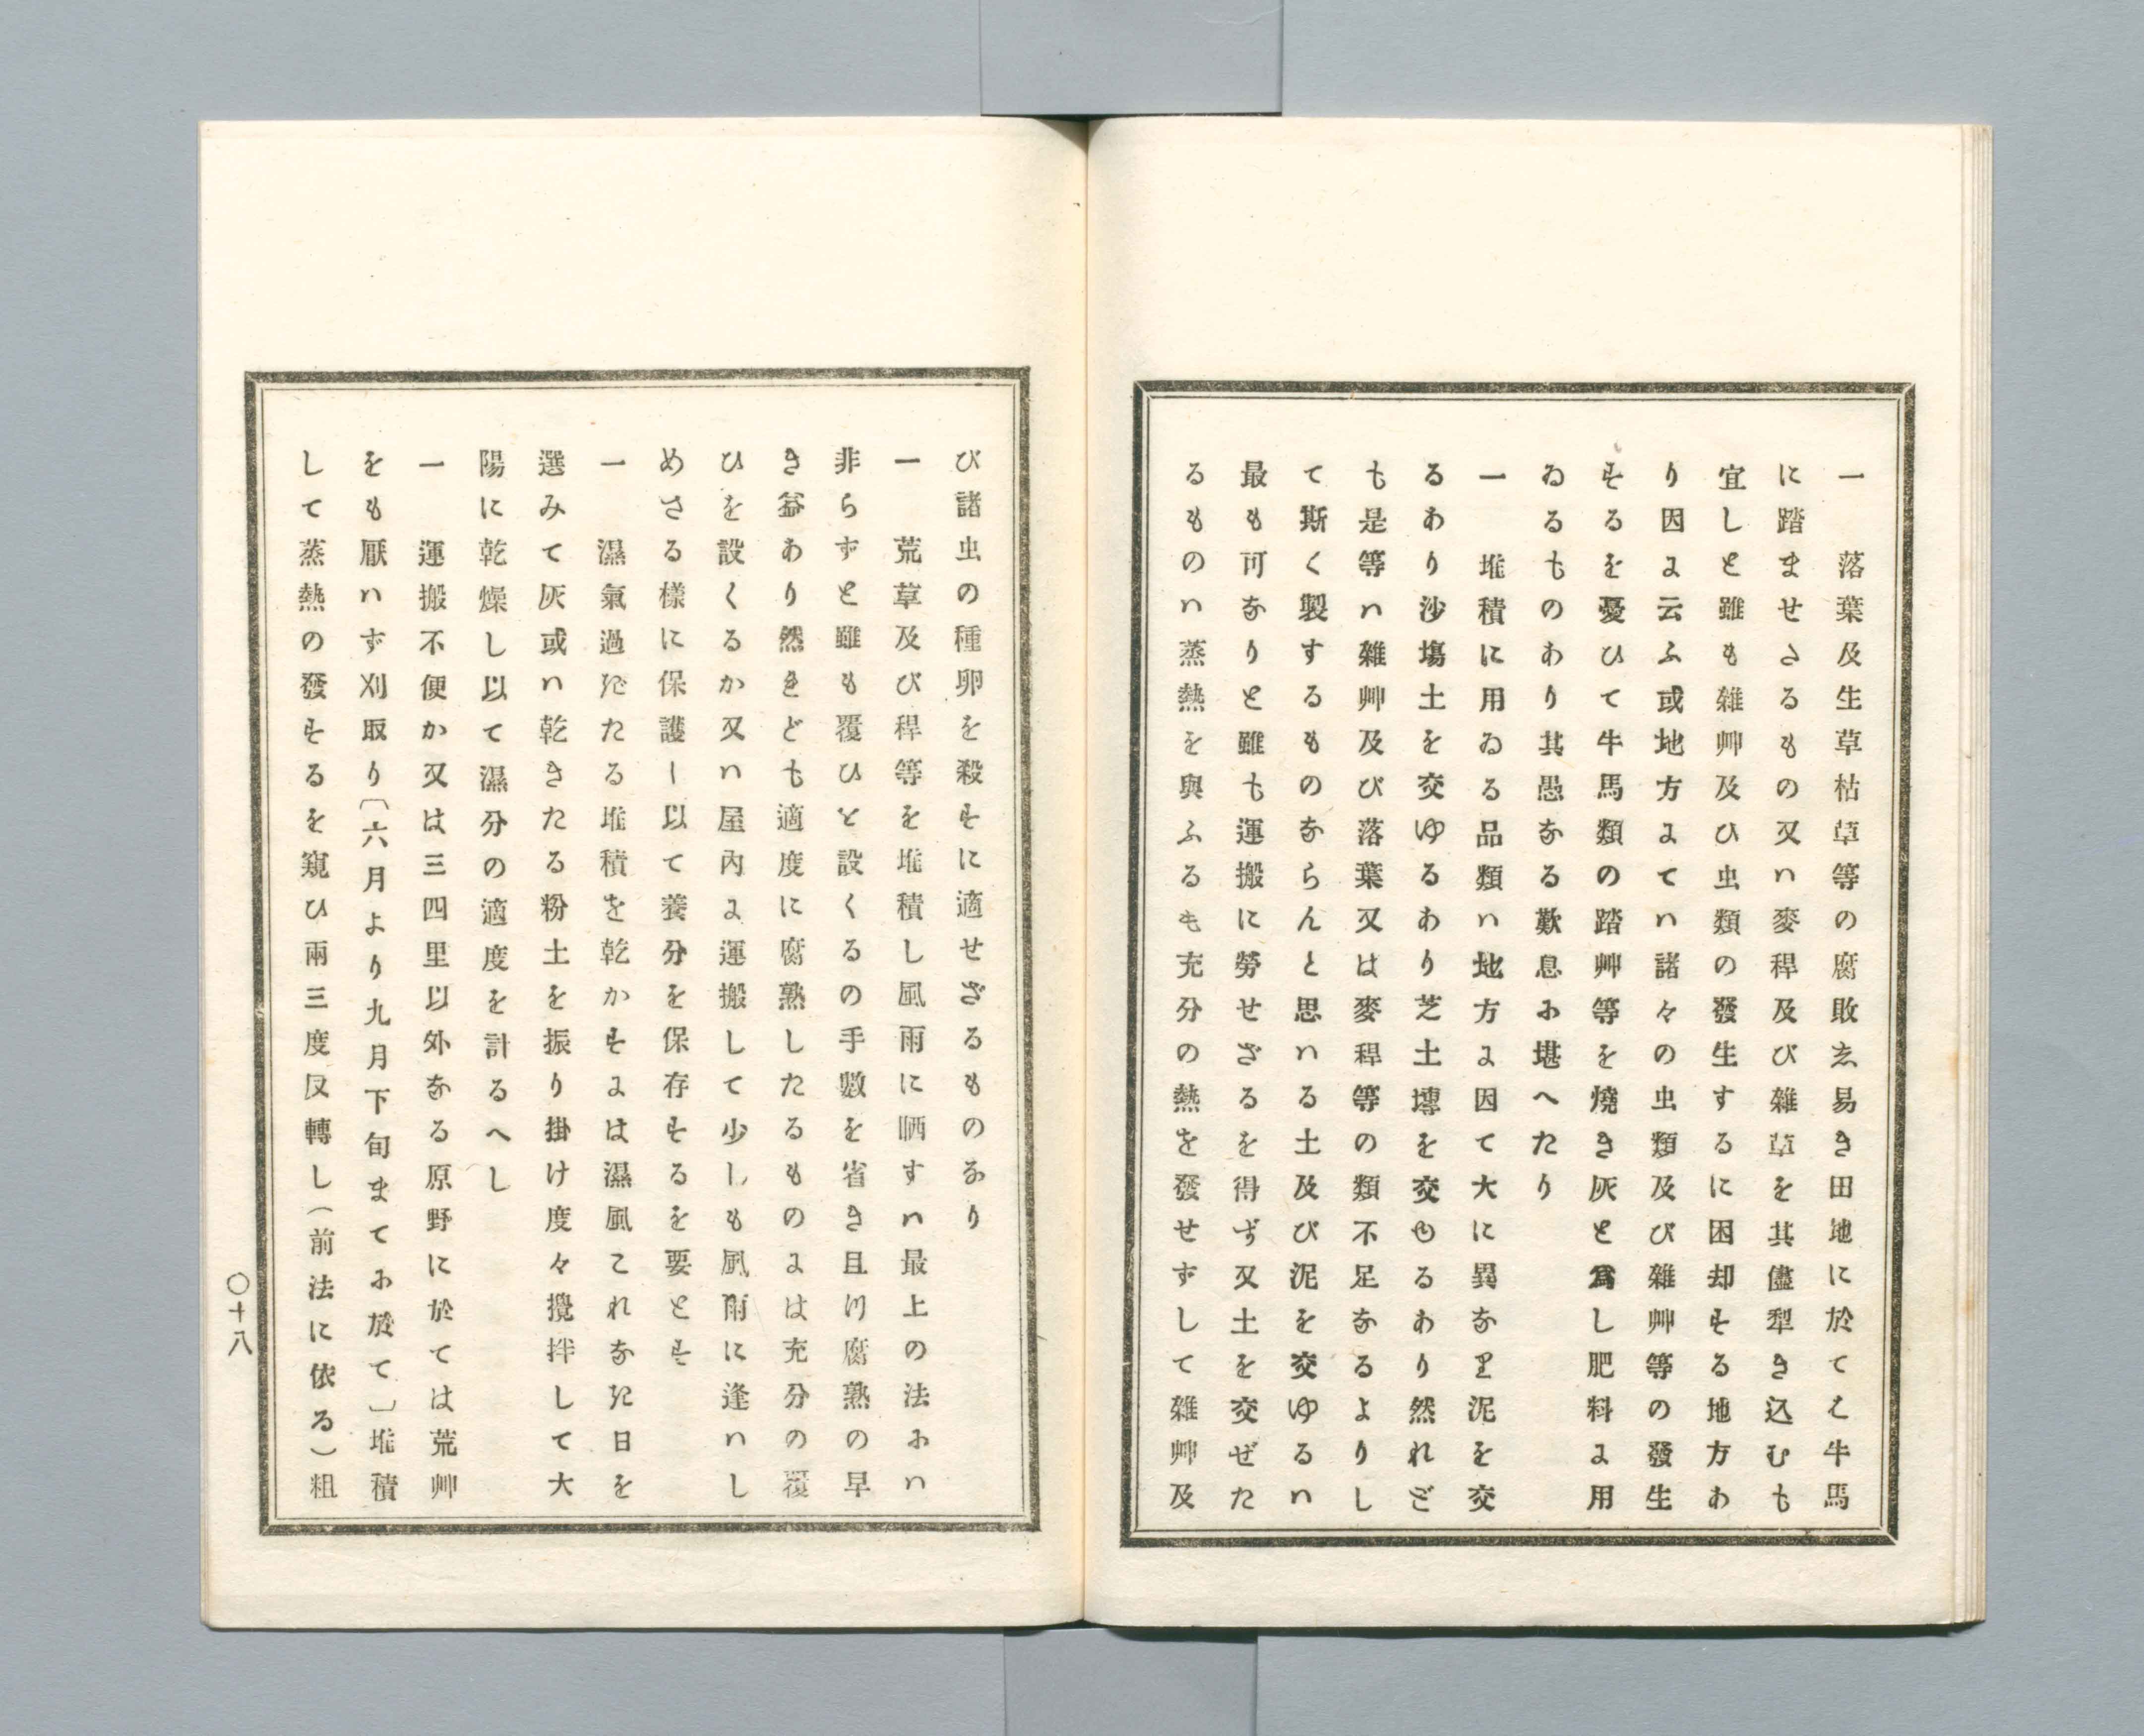 一　落葉及生草枯草等の腐敗𛁈易き田地に於てハ牛馬
に踏ませさるもの又ハ麥稈及び雜草を其儘犁き込むも
宜しと雖も雜艸及ひ虫類の發生するに困却𛁏る地方あ
り因𛂌云ふ或地方𛂌てハ諸々の虫類及び雜艸等の發生
𛁏るを憂ひて牛馬類の踏艸等を燒き灰と爲し肥料𛂌用
ゐるものあり其愚𛂁る歎息𛂌堪へたり
一　堆積に用ゐる品類ハ地方𛂌因て大に異𛂁り泥を交
るあり沙塲土を交ゆるあり芝土塼を交ゆるあり然れど
も是等ハ雜艸及び落葉又は麥稈等の類不足𛂁るよりし
て斯く製するもの𛂁らんと思ハる土及び泥を交ゆるハ
最も可𛂁りと雖も運搬に勞せざるを得ず又土を交ぜた
るものハ蒸熱を與ふるも充分の熱を發せずして雜艸及
び諸虫の種卵を殺𛁏に適せざるもの𛂁り
一　荒草及び稈等を堆積し風雨に晒すハ最上の法𛂌ハ
非らずと雖も覆ひを設くるの手數を省き且つ腐熟の早
き益あり然れども適度に腐熟したるもの𛂌は充分の覆
ひを設くるか又ハ屋內𛂌運搬して少しも風雨に逢ハし
めさる樣に保護し以て養分を保存𛁏るを要と𛁏
一　濕氣過ぎたる堆積を乾か𛁏𛂌は濕風これ𛂁き日を
選みて灰或ハ乾きたる粉土を振り掛け度々攪拌して大
陽に乾燥し以て濕分の適度を計るへし
一　運搬不便か又は三四里以外𛂁る原野に於ては荒艸
をも厭ハず刈取り〔六月より九月下旬まて𛂌於て〕堆積
して蒸熱の發𛁏るを窺ひ兩三度反轉し（前法に依る）粗
〇十八